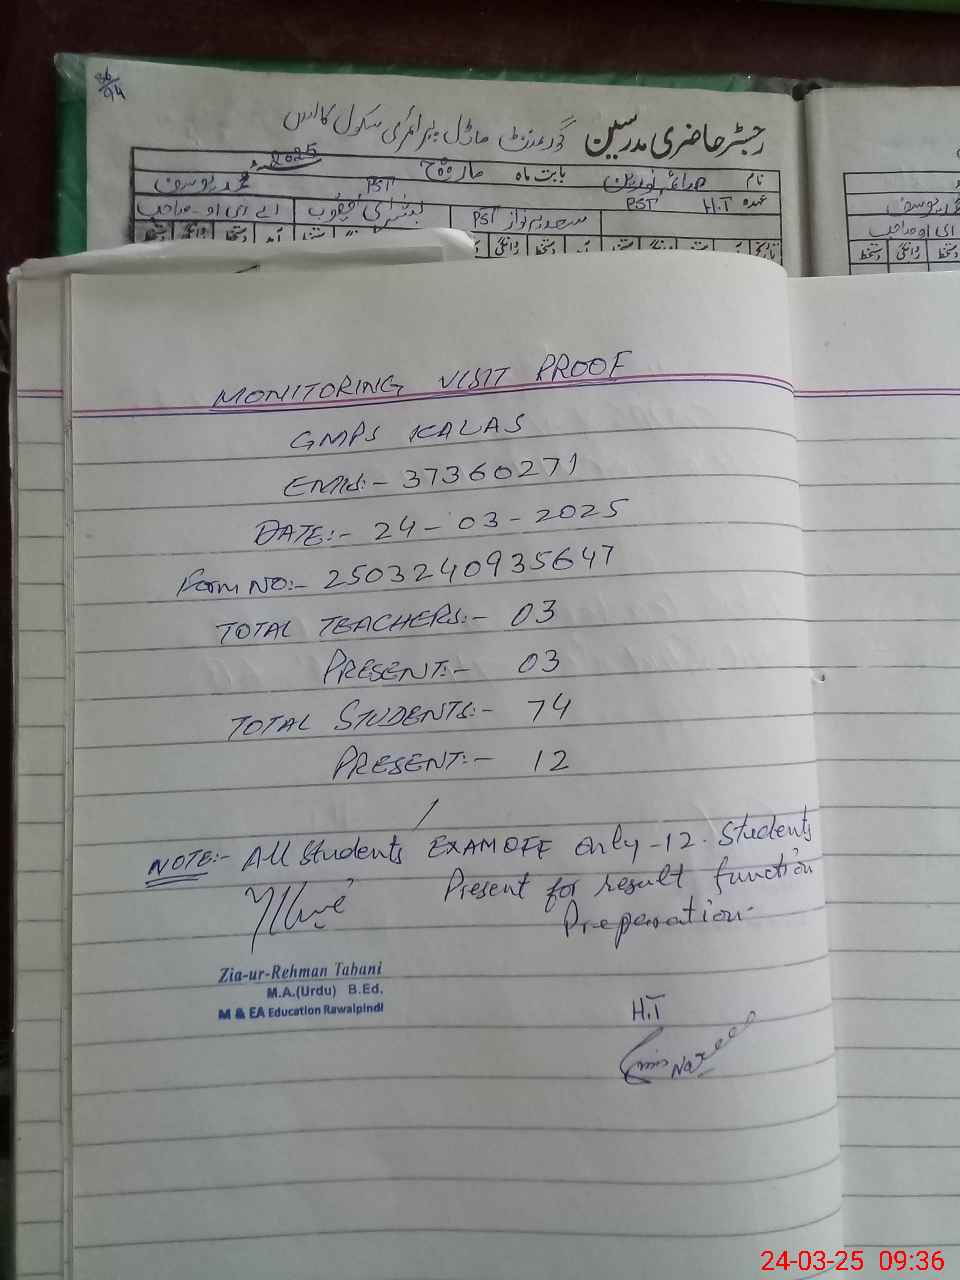 36/94
رجسٹر حاضری مدرسین گورنمنٹ ماڈل پرائمری سکول کلاس
نام بابت ماہ مارچ 2025
عہدہ H.T PST PST محمد یوسف
سعدیہ نواز PST بشرٰی یعقوب اے ای او صاحب
MONITORING VISIT PROOF
GMPS KALAS
EMIS:- 37360271
DATE:- 24-03-2025
Form NO:- 2503240935647
TOTAL TEACHERS:- 03
PRESENT:- 03
TOTAL STUDENTS:- 74
PRESENT:- 12
NOTE:- All Students EXAM OFF only -12. Students
Present for result function
Preparation-
Zia-ur-Rehman Tabani
M.A.(Urdu) B.Ed.
M & EA Education Rawalpindi
H.T
24-03-25 09:36